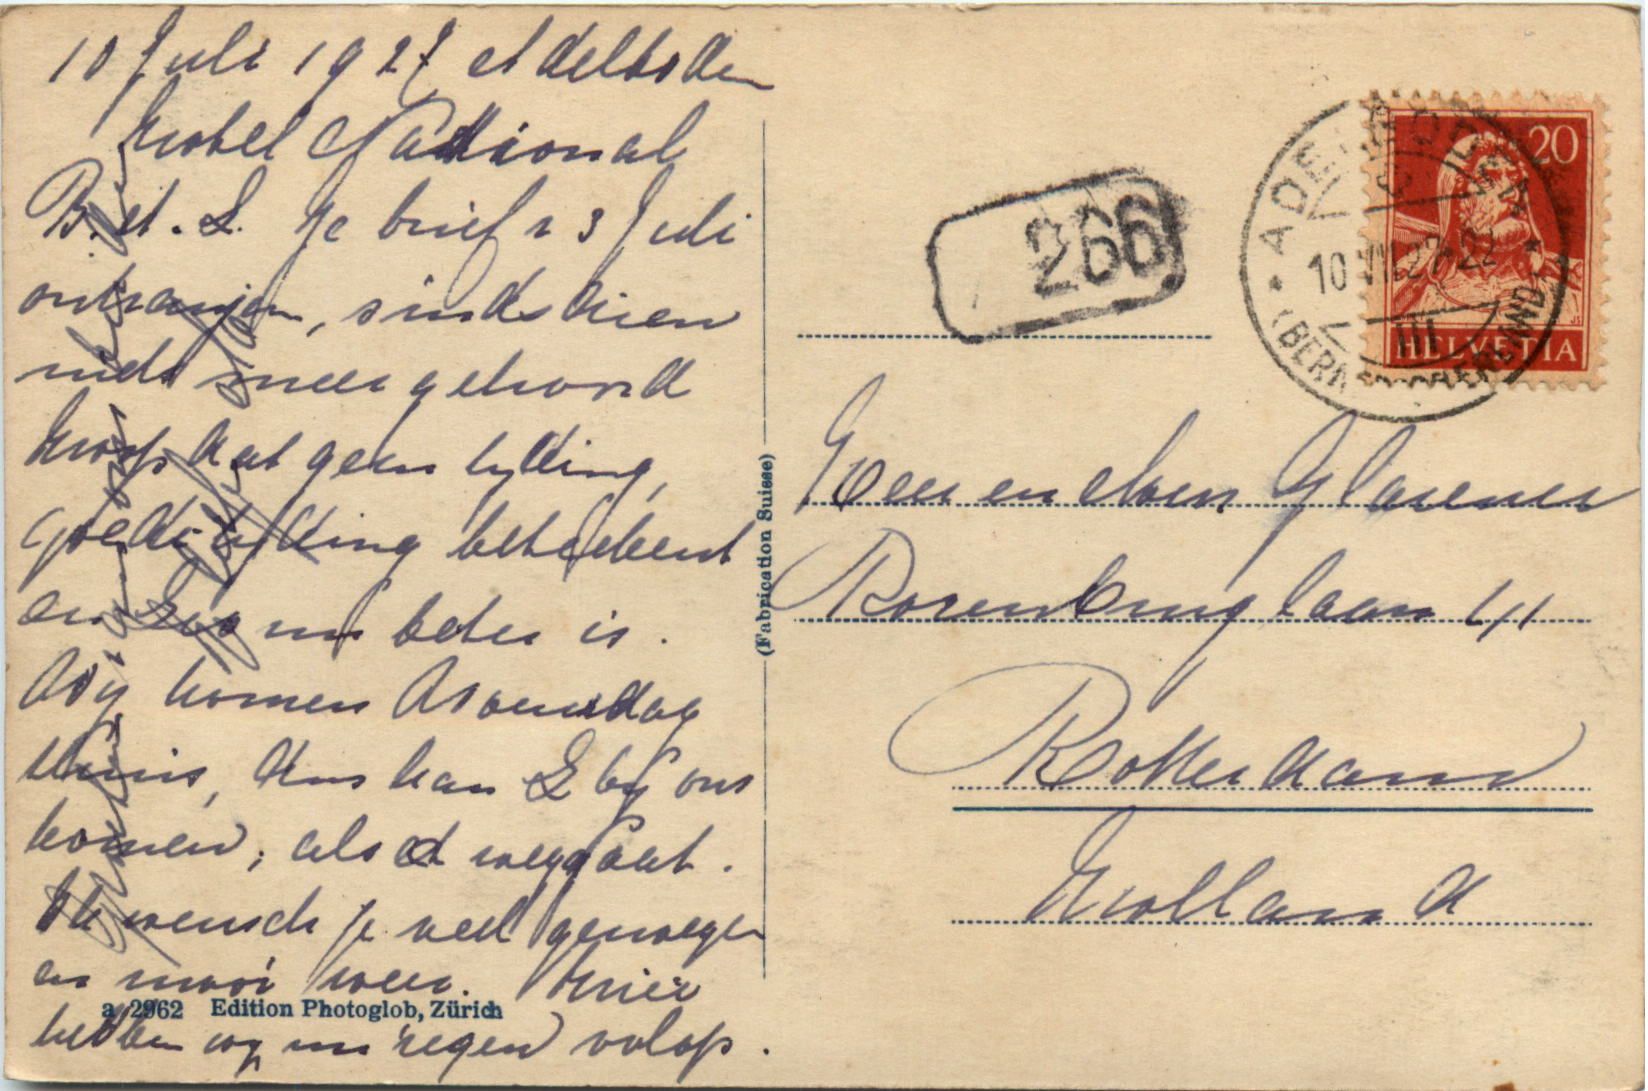 10 Juli 1927 Adelboden
Hotel National
B. et. L. Je brief v 3 Juli
ontvangen, sinds dien
niets meer gehoord
hoop dat geen tyding,
goede tyding beteekent
en nu beter is.
Wy komen Woensdag
thuis, dus kan L by ons
komen, als A weggaat.
Ik wensch je veel genoegen
en mooi weer. Hier
hebben wy nu regen volop.
a 2962 Edition Photoglob, Zürich
(Fabrication Suisse)
266
ADELBODEN
10.VII.27-22
III
(BERNER OBERLAND)
20
HELVETIA
Heer en Mevr. Glasener
Rozenburglaan 41
Rotterdam
Holland